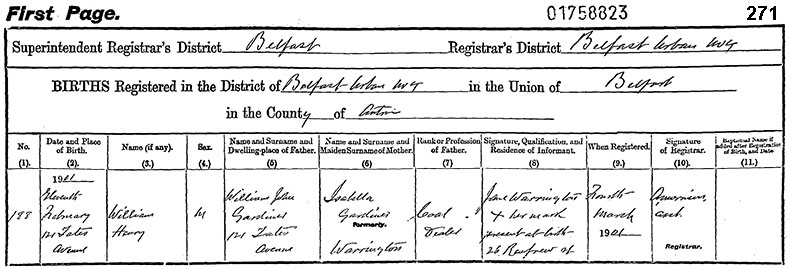 First Page. 01758823 271
Superintendent Registrar's District Belfast Registrar's District Belfast Urban
BIRTHS Registered in the District of Belfast Urban in the Union of Belfast
in the County of Antrim
No. Date and Place of Birth. Name (if any). Sex. Name and Surname and Dwelling-place of Father. Name and Surname and Maiden Surname of Mother. Rank or Profession of Father. Signature, Qualification, and Residence of Informant. When Registered. Signature of Registrar. Baptismal Name if added after Registration of Birth, and Date
(1). (2). (3.) (4.) (5) (6) (7) (8) (9.) (10). (11.)
1901
Eleventh William John Isabella Jane Warrington Fourth
188 February William M Gardiner Gardiner Coal + her mark March
121 Tates Henry 121 Tates Formerly. Dealer present at birth 1901
Avenue Avenue Warrington 26 Renfrew st Registrar.